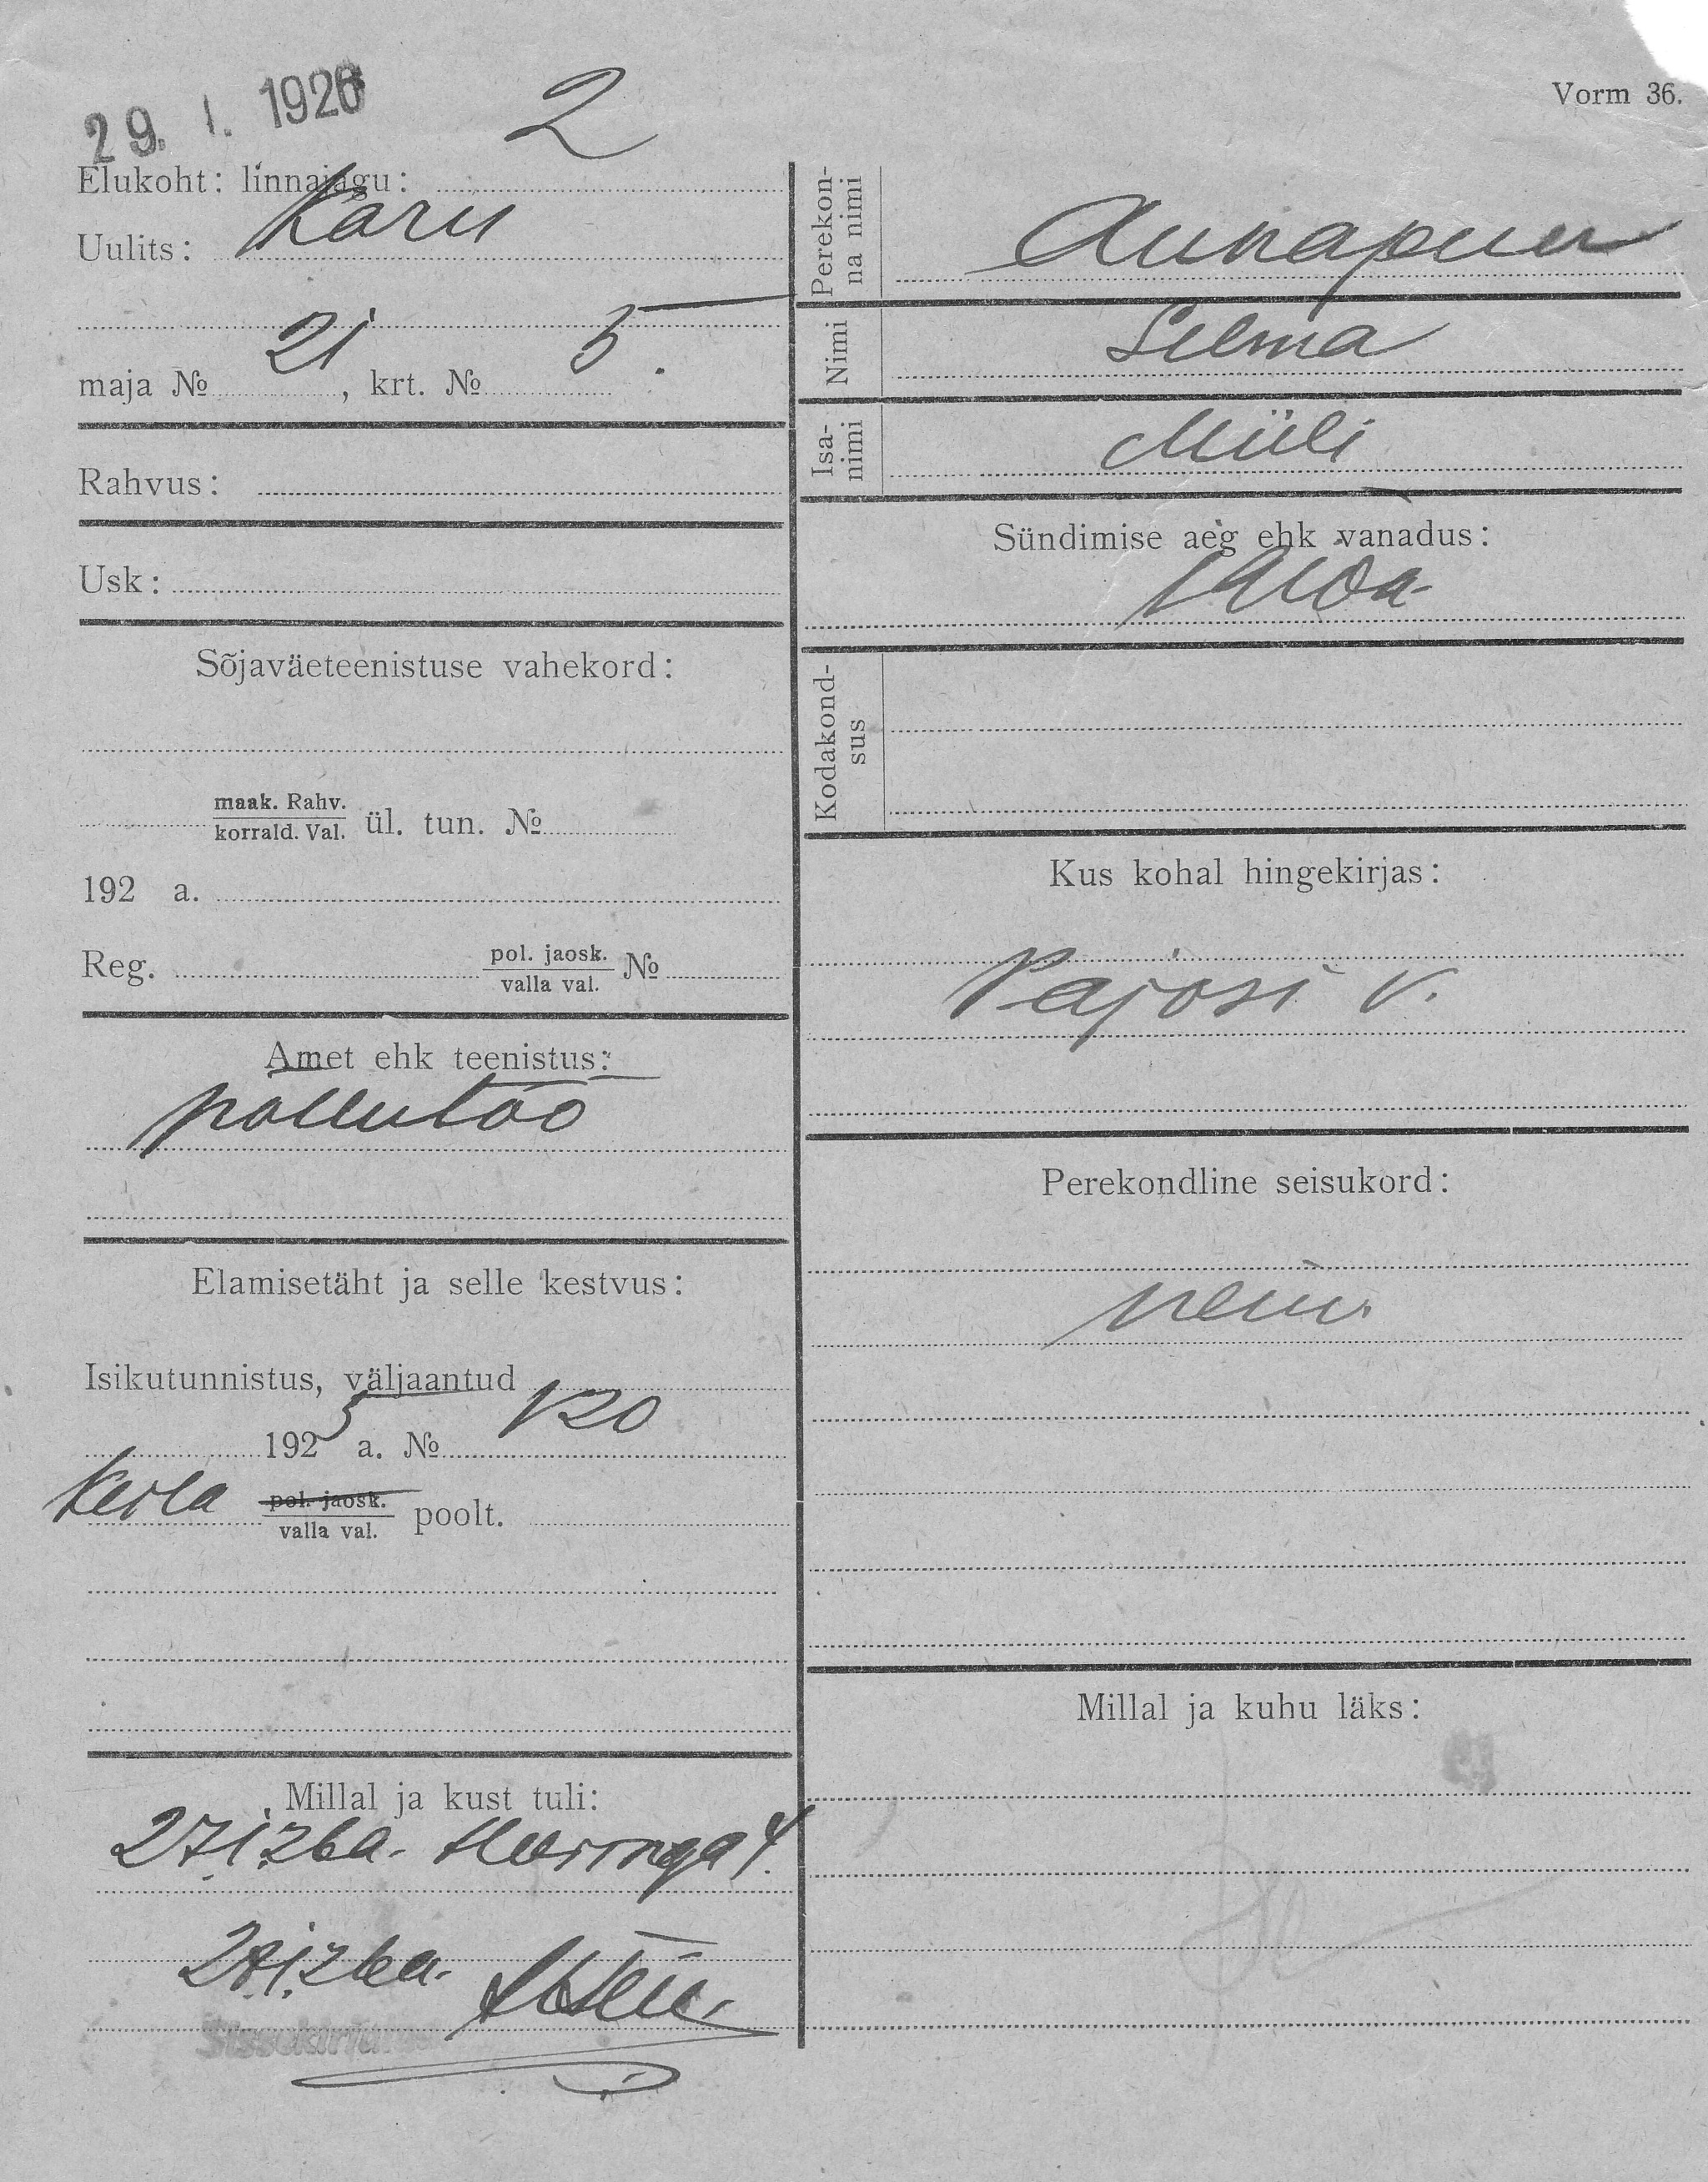 29. I. 1926
2
Vorm 36.
Elukoht: linnajagu:
Uulits: Karu
maja № 21, krt. № 5
Rahvus:
Usk:
Sõjaväeteenistuse vahekord:
maak. Rahv.
korrald. Val. ül. tun. №
192 a.
Reg. pol. jaosk.
valla val. №
Amet ehk teenistus:
põllutöö
Elamisetäht ja selle kestvus:
Isikutunnistus, väljaantud
1925 a. № 120
Keila pol. jaosk.
valla val. poolt.
Millal ja kust tuli:
27.I.26a. 4.
28.I.26a.
Sissekirjutud
Perekon-
na nimi
Annapuu
Nimi Selma
Isa-
nimi
Jüli
Sündimise aeg ehk vanadus:
Kodakond-
sus
Kus kohal hingekirjas:
Pajusi v.
Perekondline seisukord:
neiu.
Millal ja kuhu läks: